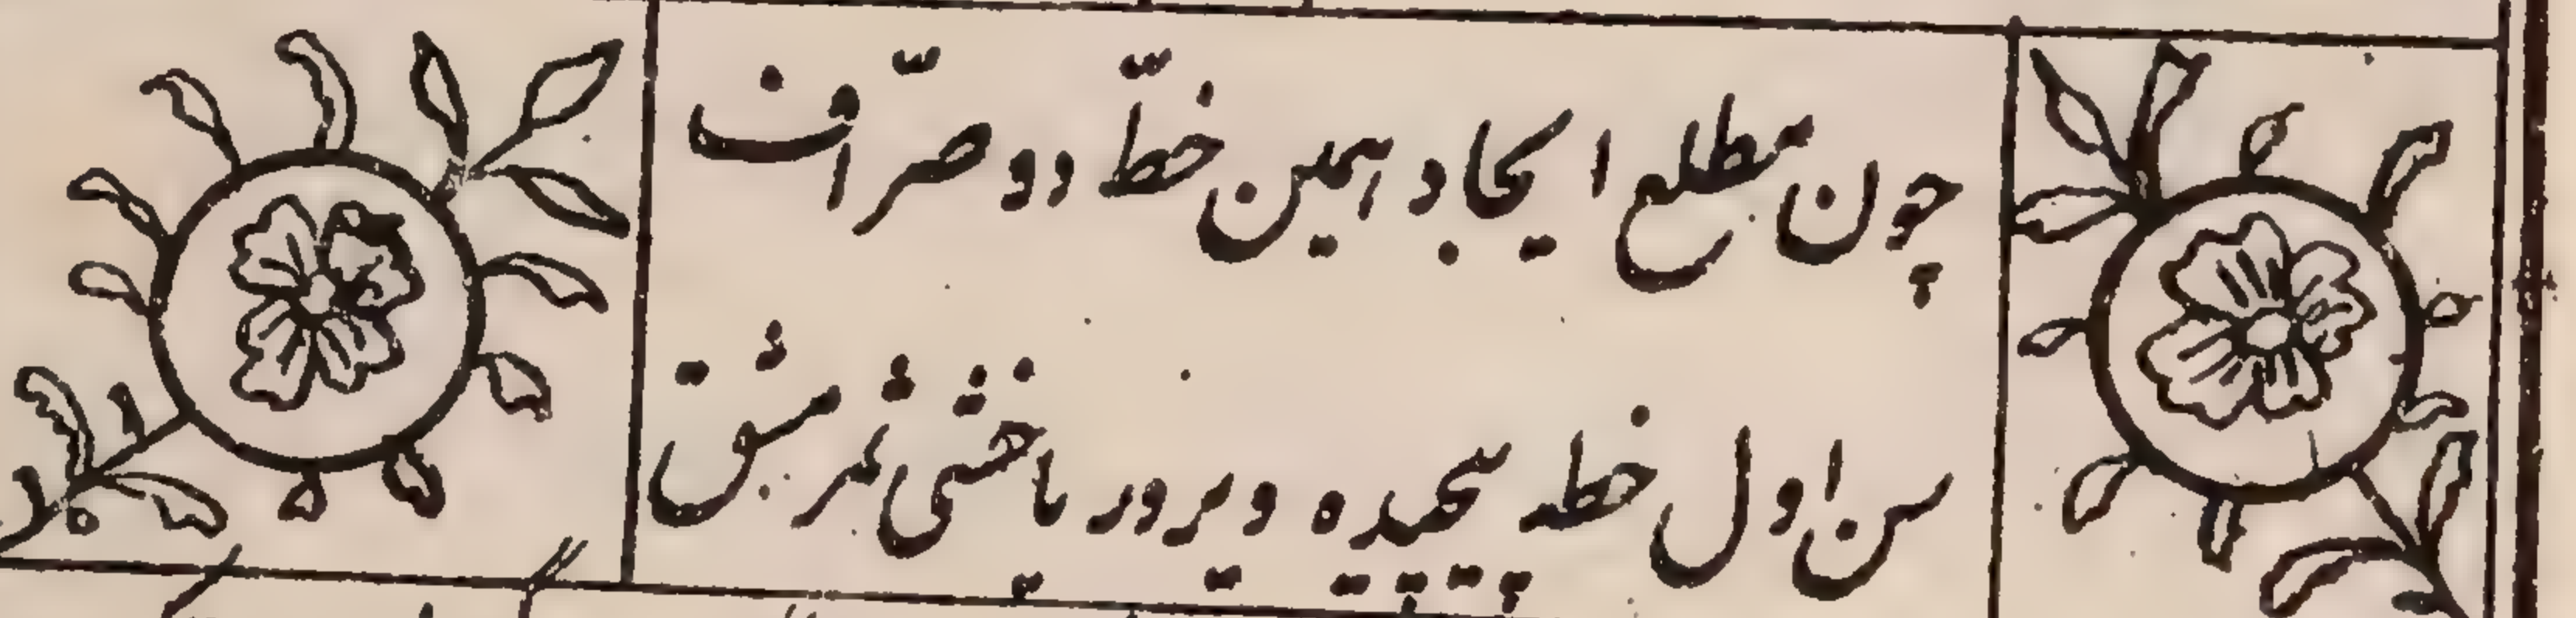 چون مطلع ایجاد بهمین خطّ دو صرّاف
سن اول خط پیچیده ویرور یاخشی ثمر مشق